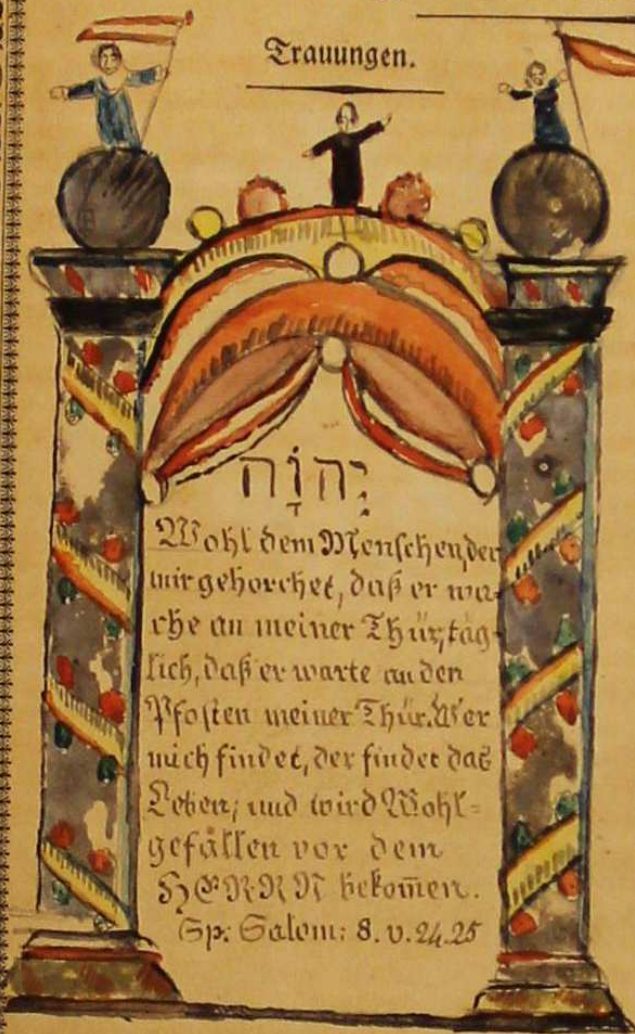 Trauungen.
יְהוָֹה
Wohl dem Menschen, der
mir gehorchet, daß er wa-
che an meiner Thür, täg-
lich, daß er warte an den
Pfosten meiner Thür. Wer
mich findet, der findet das
Leben; und wird Wohl=
gefällen vor dem
HERRN bekom̄en.
Sp: Salom: 8. v. 24.25